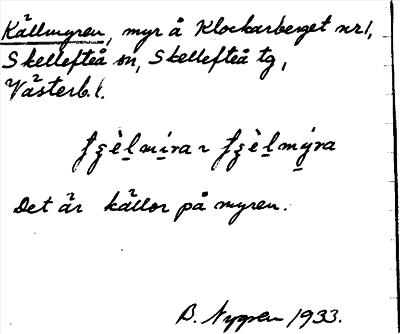 Källmyren, myr å Klockarberget nr 1,
Skellefteå sn, Skellefteå tg,
Västerb. l.
Det är källor på myren.
B. Nygren 1933.